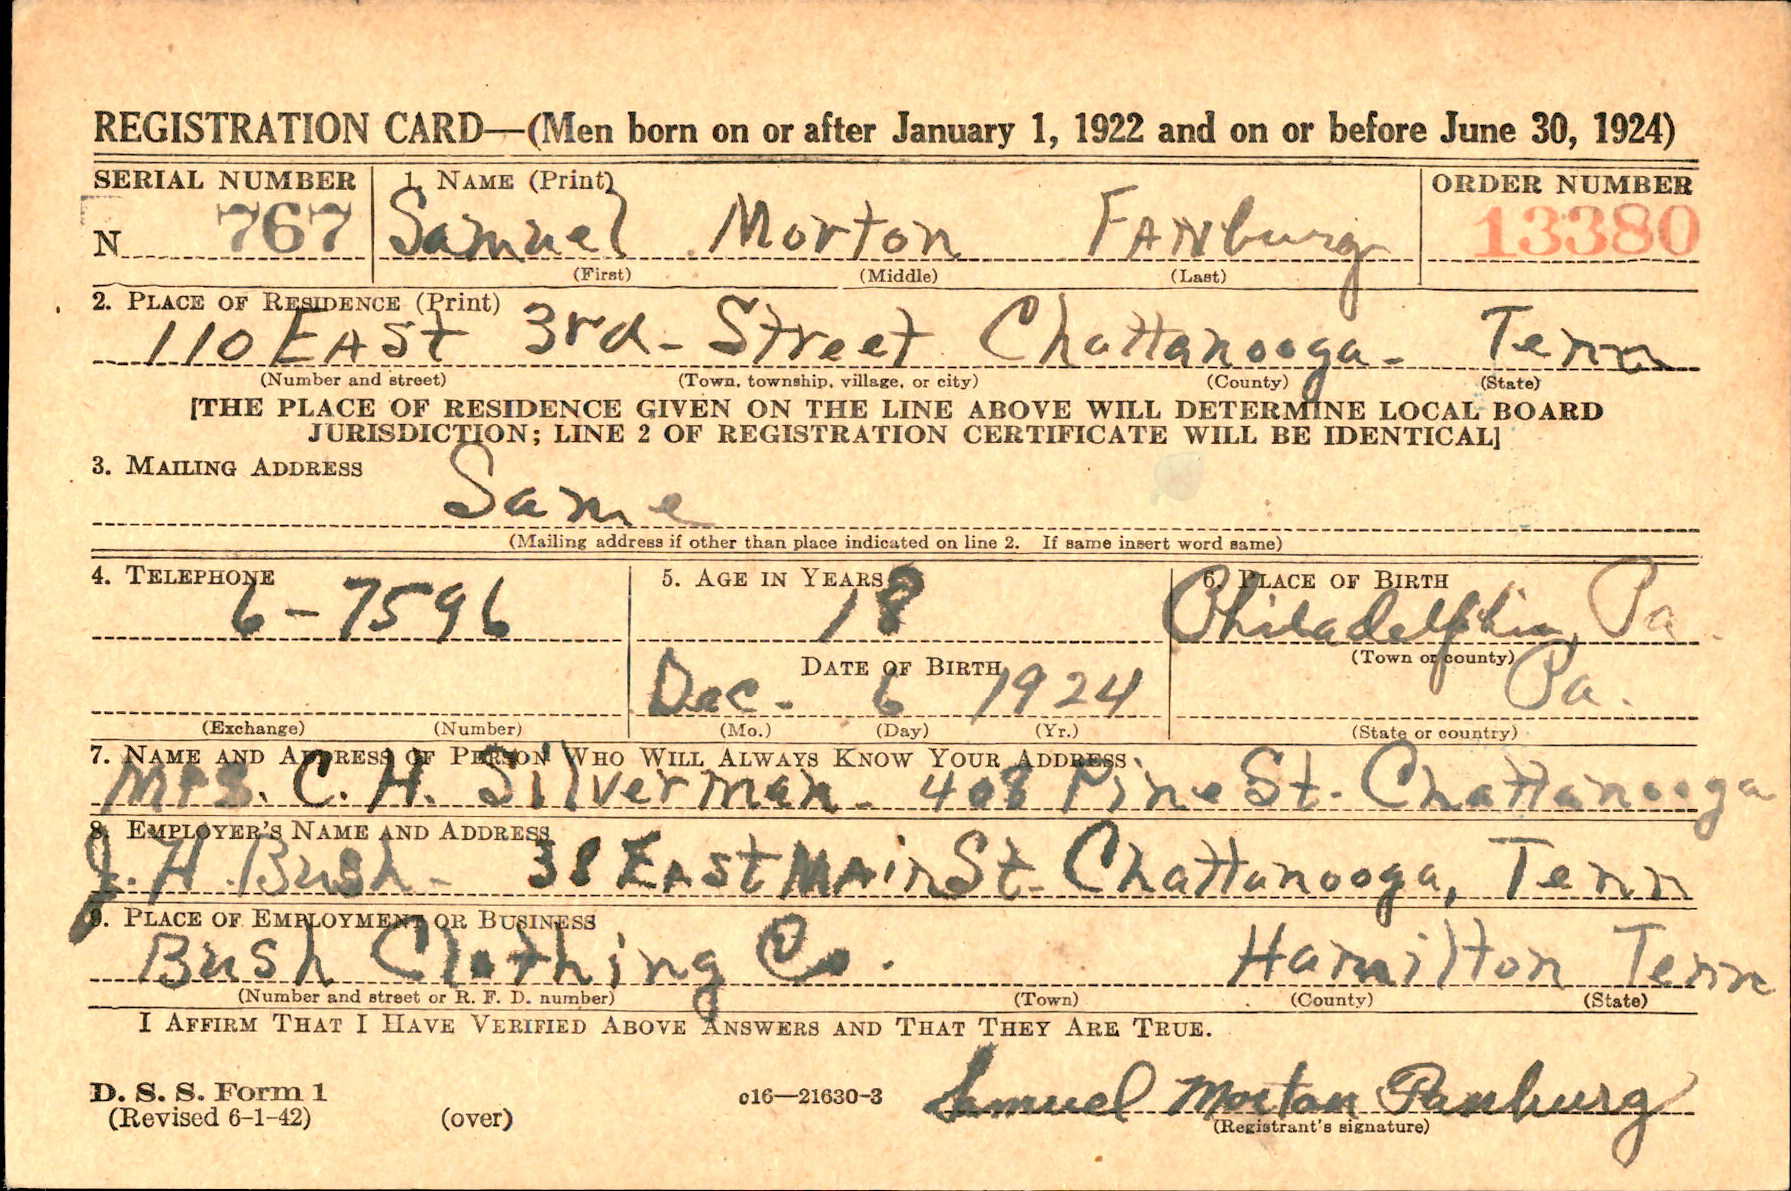 REGISTRATION CARD—(Men born on or after January 1, 1922 and on or before June 30, 1924)
SERIAL NUMBER 1. NAME (Print) ORDER NUMBER
N 767 Samuel Morton FANburg 13380
(First) (Middle) (Last)
2. PLACE OF RESIDENCE (Print)
110 EAST 3rd - Street Chattanooga - Tenn
(Number and street) (Town, township, village, or city) (County) (State)
[THE PLACE OF RESIDENCE GIVEN ON THE LINE ABOVE WILL DETERMINE LOCAL BOARD
JURISDICTION; LINE 2 OF REGISTRATION CERTIFICATE WILL BE IDENTICAL]
3. MAILING ADDRESS
Same
(Mailing address if other than place indicated on line 2. If same insert word same)
4. TELEPHONE 5. AGE IN YEARS 6. PLACE OF BIRTH
6-7596 18 Philadelphia, Pa
DATE OF BIRTH (Town or county)
Dec. 6 1924 Pa.
(Exchange) (Number) (Mo.) (Day) (Yr.) (State or country)
7. NAME AND ADDRESS OF PERSON WHO WILL ALWAYS KNOW YOUR ADDRESS
Mrs. C. H. Silverman - 408 Pine St. Chattanooga
8. EMPLOYER'S NAME AND ADDRESS
J. H. Bush - 38 EAST MAin St. Chattanooga, Tenn
9. PLACE OF EMPLOYMENT OR BUSINESS
Bush Clothing Co. Hamilton Tenn
(Number and street or R. F. D. number) (Town) (County) (State)
I AFFIRM THAT I HAVE VERIFIED ABOVE ANSWERS AND THAT THEY ARE TRUE.
D. S. S. Form 1 c16—21630-3 Samuel Morton Fanburg
(Revised 6-1-42) (over) (Registrant's signature)